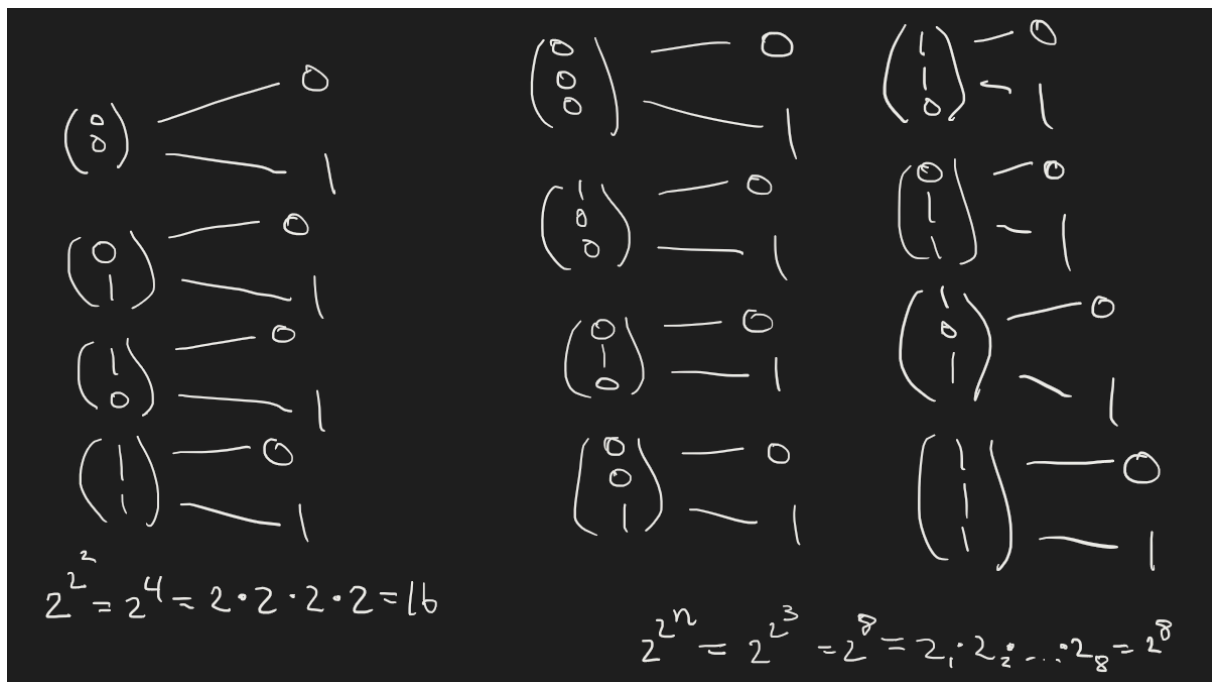 (0 0) 0 1
(0 1) 0 1
(1 0) 0 1
(1 1) 0 1
2^{2^2} = 2^4 = 2·2·2·2 = 16
(0 0 0) 0 1
(1 0 0) 0 1
(0 1 0) 0 1
(0 0 1) 0 1
(1 1 0) 0 1
(0 1 1) 0 1
(1 0 1) 0 1
(1 1 1) 0 1
2^{2^n} = 2^{2^3} = 2^8 = 2_1·2_2·...·2_8 = 2^8